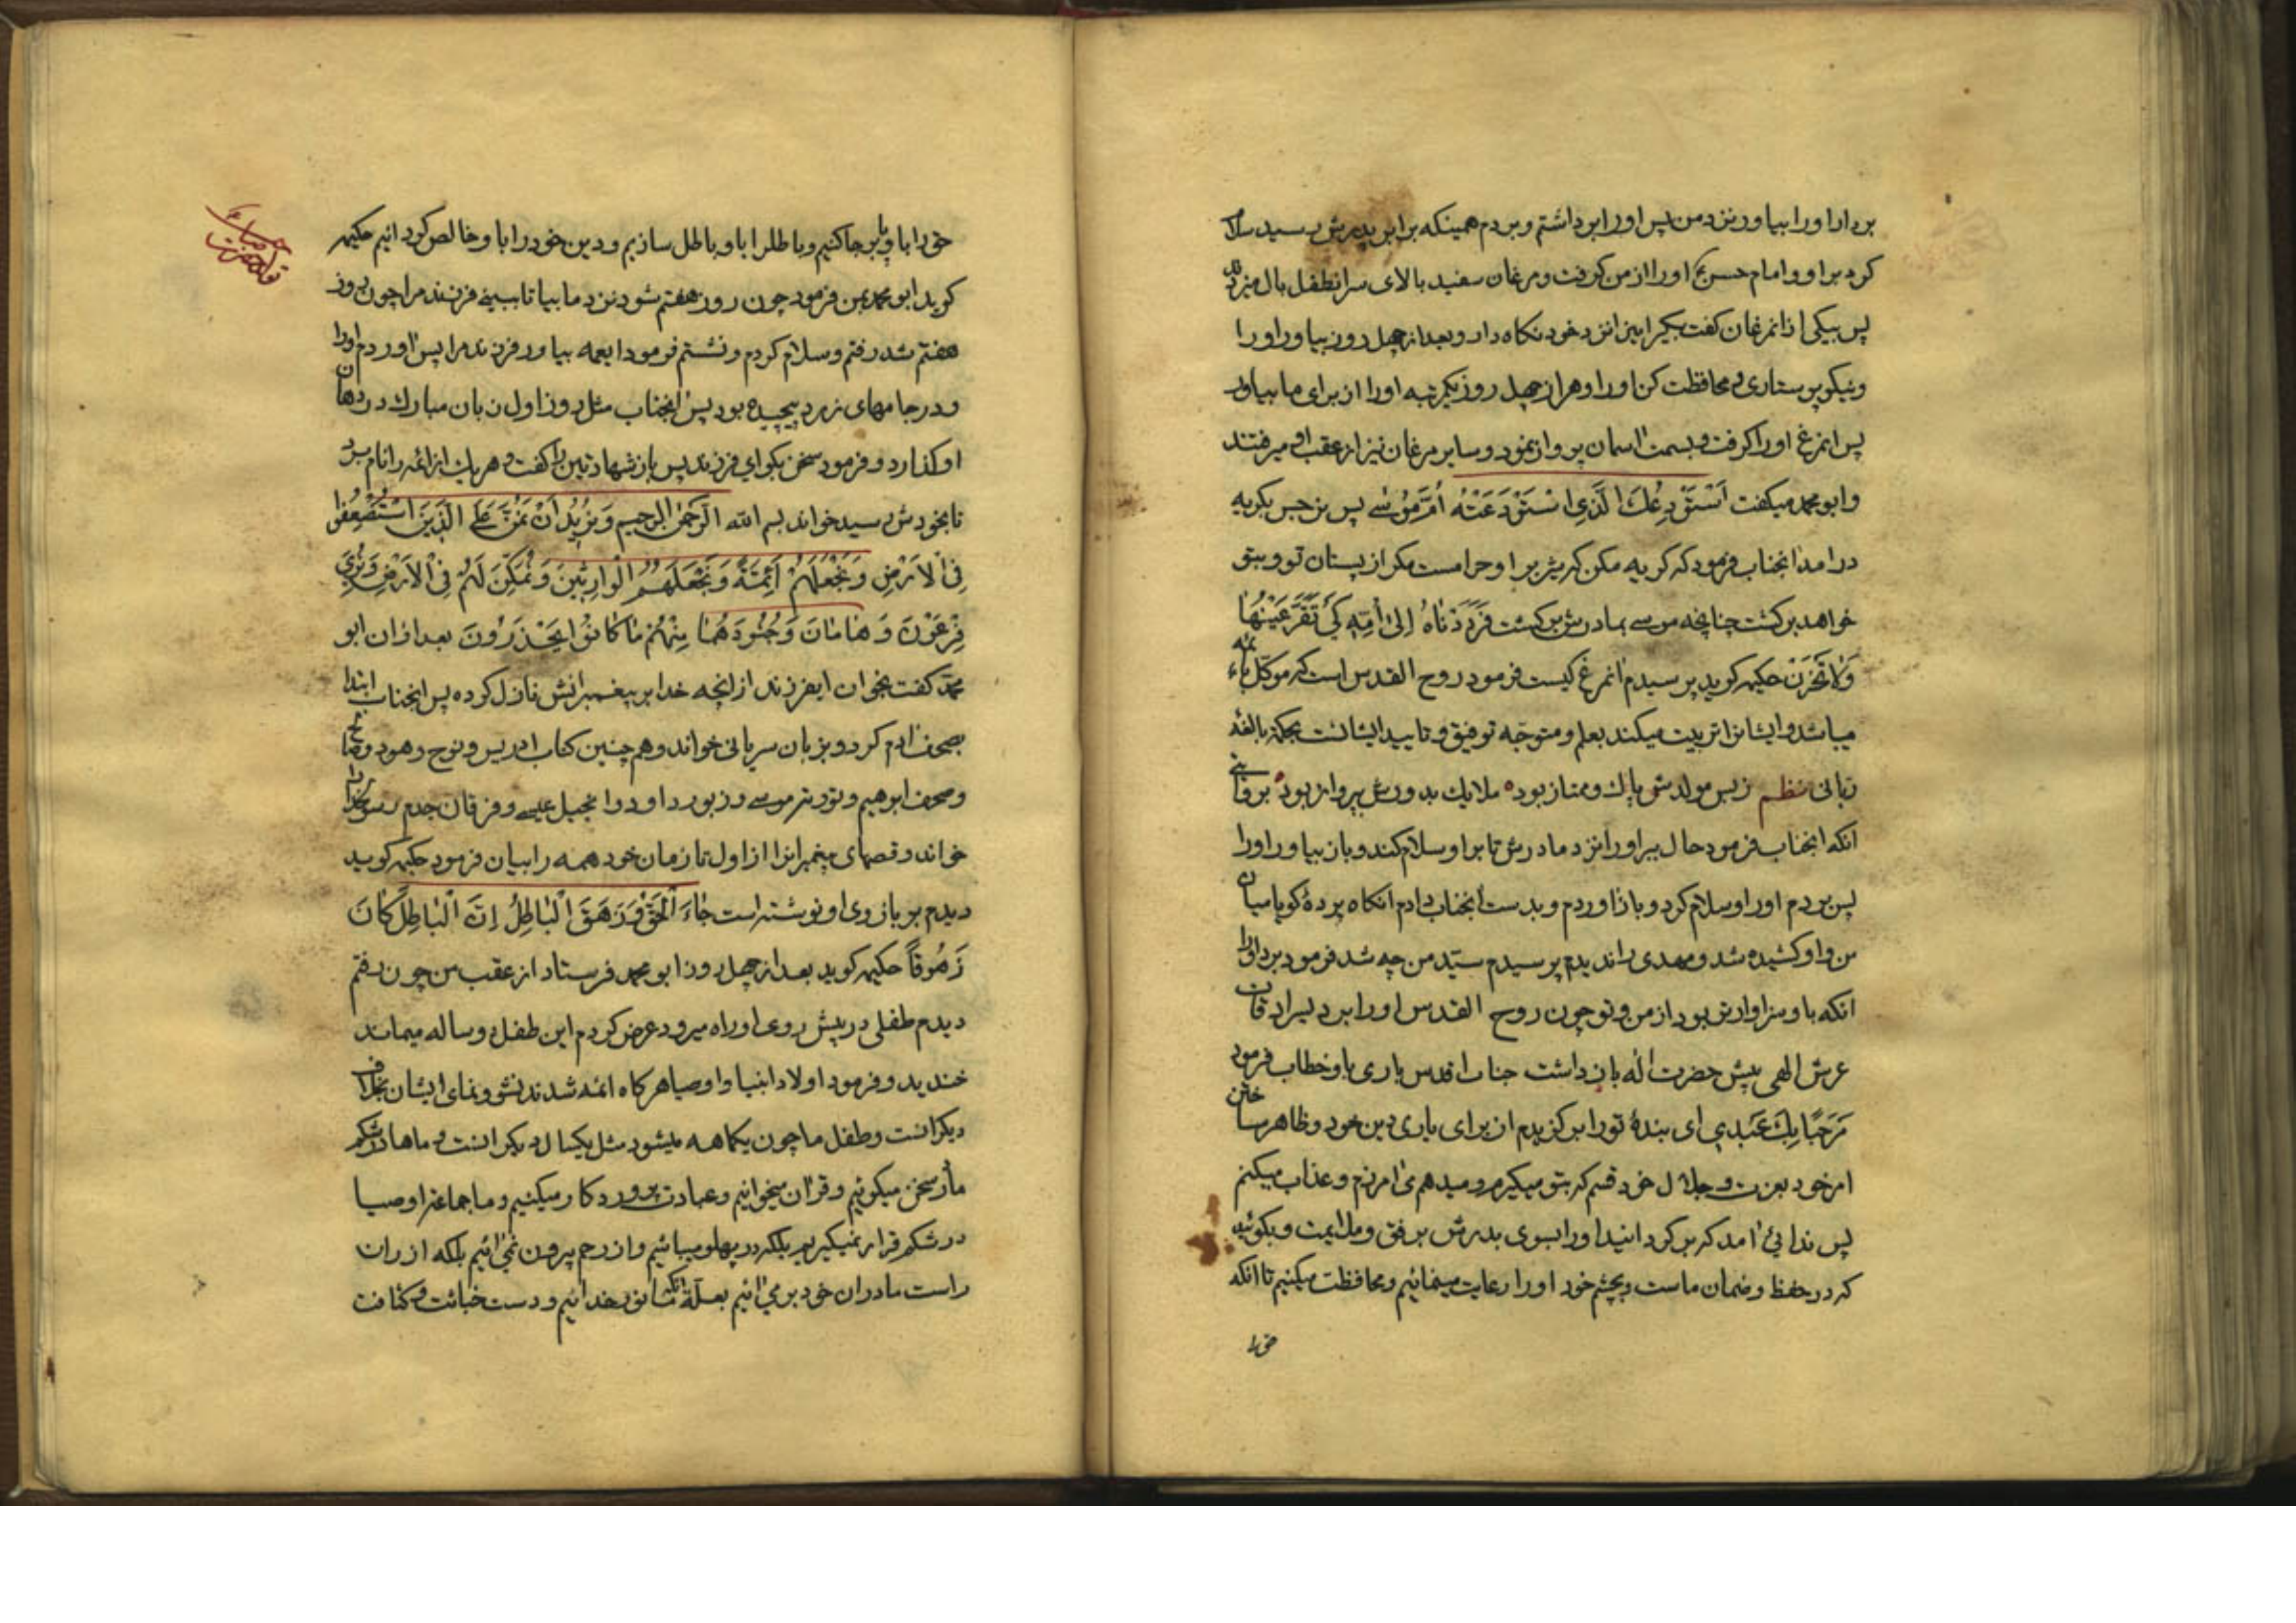 بردار او را بیاور نزد من پس او را برداشتم و بردم همینکه برابر پدرش رسید سلام
کرد بر او و امام حسن ع او را از من گرفت و مرغان سفید بالای سر انطفل بال میزدند
پس بیکی از انمرغان گفت بگیر این را نزد خود نگاه دار و بعد از چهل روز بیاور او را
و نیکو پرستاری و محافظت کن او را و هر از چهل روز یکمرتبه او را از برای ما بیاور
پس انمرغ او را گرفت و بسمت اسمان پرواز نمود و سایر مرغان نیز از عقب او میرفتند
و ابو محمد میگفت اَسْتَوْدِعُكَ الَّذِی اسْتَوْدَعَتْهُ اُمُّ مُوسٰی پس نرجس بگریه
درامد انجناب فرمود که گریه مکن که شیر بر او حرامست مگر از پستان تو و بتو
خواهد برگشت چنانچه موسی بمادرش برگشت فَرَدَدْنَاهُ اِلٰی اُمِّهِ كَیْ تَقَرَّ عَیْنُهَا
وَلَا تَحْزَنَ حکیمه گوید پرسیدم انمرغ کیست فرمود روح القدس است که موکل بائمه
میباشد و ایشانرا تربیت میکند بعلم و متوجّه توفیق و تایید ایشانست بحکمة بالغه
ربانی نظم زبس مولدش پاک و ممتاز بوده ملایک بدورش بپرواز بود بروایتی
انکه انجناب فرمود حال ببر او را نزد مادرش تا بر او سلام کند و باز بیاور او را
پس بردم او را و سلام کرد و باز اوردم و بدست انجناب دادم انگاه پردهٔ گویا میان
من و او کشیده شد و مهدی را ندیدم پرسیدم سیّد من چه شد فرمود برد او را
انکه باو سزاوارتر بود از من و تو چون روح القدس او را برد
عرش الهی پیش حضرت اله باز داشت جناب اقدس باری باو خطاب فرمود
مَرْحَبًا بِكَ عَبْدِی ای بندهٔ تو را برگزیدم از برای یاری دین خود و ظاهر ساختن
امر خود بعزت و جلال خود قسم که بتو میگیرم و میدهم می امرزم و عذاب میکنم
پس ندائی امد که برگردانید او را بسوی پدرش برفق و ملایمت و بگوئید
که در حفظ و ضمان ماست و بچشم خود او را رعایت مینمائیم و محافظت میکنیم تا انکه
حق را
حق را باو پا بر جا کنیم و باطلرا باو باطل سازیم و دین خود را باو خالص گردانیم حکیمه
گوید ابو محمد بمن فرمود چون روز هفتم شود نزد ما بیا تا ببینی فرزند مرا چون روز
هفتم شد رفتم و سلام کردم و نشستم فرمود ایعمه بیاور فرزند مرا پس اوردم او را
و در جامهای زرد پیچیده بود پس انجناب مثل روز اول زبان مبارک در دهان
او گذارد و فرمود سخن بگو ای فرزند پس باز شهادتین را گفت و هر یک از ائمه را نام برد
تا بخودش رسید خواند بسم الله الرحمن الرحیم وَنُرِیدُ اَنْ نَمُنَّ عَلَی الَّذِینَ اسْتُضْعِفُوا
فِی الْاَرْضِ وَنَجْعَلَهُمْ اَئِمَّةً وَنَجْعَلَهُمُ الْوَارِثِینَ وَنُمَكِّنَ لَهُمْ فِی الْاَرْضِ وَنُرِیَ
فِرْعَوْنَ وَهَامَانَ وَجُنُودَهُمَا مِنْهُمْ مَا كَانُوا یَحْذَرُونَ بعد از ان ابو
محمّد گفت بخوان ایفرزند از انچه خدا بر پیغمبرانش نازل کرده پس انجناب ابتدا
بصحف ادم کرد و بزبان سریانی خواند و هم چنین کتاب ادریس و نوح و هود و صالح
و صحف ابراهیم و توریة موسی و زبور داود و انجیل عیسی و فرقان جدم رسولخدا را
خواند و قصهای پیغمبرانرا از اول تا زمان خود همه را بیان فرمود حکیمه گوید
دیدم بر بازوی او نوشته است جَاءَ الْحَقُّ وَزَهَقَ الْبَاطِلُ اِنَّ الْبَاطِلَ كَانَ
زَهُوقًا حکیمه گوید بعد از چهل روز ابو محمد فرستاد از عقب من چون رفتم
دیدم طفلی در پیش روی او راه میرود عرض کردم این طفل دو ساله میماند
خندید و فرمود اولاد انبیا و اوصیا هر گاه ائمه شدند نشو و نمای ایشان بخلاف
دیگرانست و طفل ما چون یکماهه میشود مثل یکسال دیگرانست و ماها در شکم
مادر سخن میگوئیم و قران میخوانیم و عبادت پروردگار میکنیم و ما جماعة اوصیا
در شکم قرار نمیگیریم بلکه در پهلو میباشیم و از رحم بیرون نمی ائیم بلکه از ران
راست مادران خود بر می ائیم بعلة انکه ما نور خدائیم و دست خباثت و کثافت